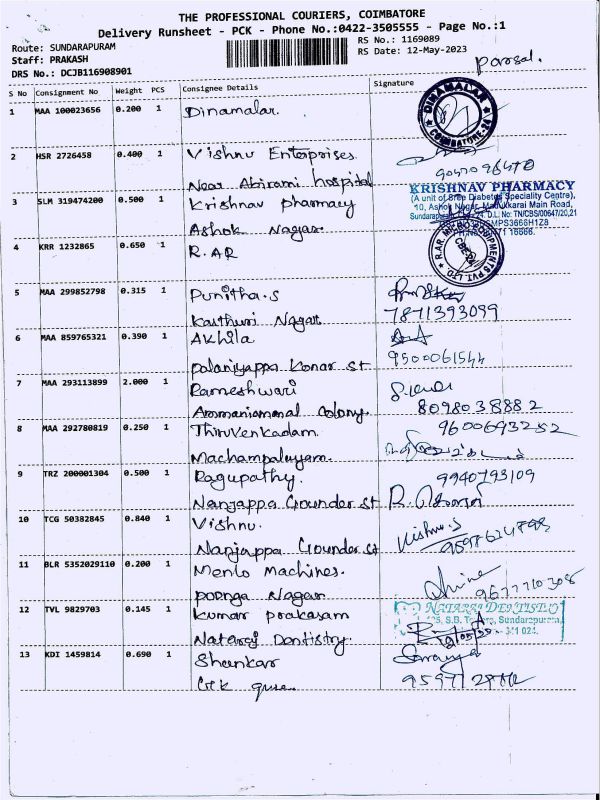 THE PROFESSIONAL COURIERS, COIMBATORE
Delivery Runsheet - PCK - Phone No.:0422-3505555 - Page No.:1
Route: SUNDARAPURAM
RS No.: 1169089
Staff: PRAKASH
RS Date: 12-May-2023
DRS No.: DCJB116908901
S No Consignment No Weight PCS Consignee Details Signature
1 MAA 100023656 0.200 1 Dinamalar.
DINAMALAR
COIMBATORE-24
2 HSR 2726458 0.400 1 Vishnu Enterprises.
Near Abirami hospital
3 SLM 319474200 0.500 1 Krishnav pharmacy
KRISHNAV PHARMACY
(A unit of Sree Diabetes Speciality Centre),
10, Ashok Nagar, Madukkarai Main Road,
Ashok Nagar.
4 KRR 1232865 0.650 1 R.AR
5 MAA 299852798 0.315 1 Punitha.S
Kasthuri Nagar
7871393099
6 MAA 859765321 0.390 1 Akhila
Palaniyappa Konar st
9500061544
7 MAA 293113899 2.000 1 Rameshwari
Ammaniammal Colony.
8098038882
8 MAA 292780819 0.250 1 Thiruvenkadam.
9600693252
Machampalayam.
9 TRZ 200001304 0.500 1 Ragupathy.
9940793109
Nanjappa Gounder St
10 TCG 50382845 0.840 1 Vishnu.
Vishnu.S
Nanjappa Gounder st
11 BLR 5352029110 0.200 1 Menlo Machines.
Poonga Nagar
9677710308
12 TVL 9829703 0.145 1 Kumar prakasam
NATARAJ DENTISTRY
Nataraj Dentistry.
13 KDI 1459814 0.690 1 Shankar